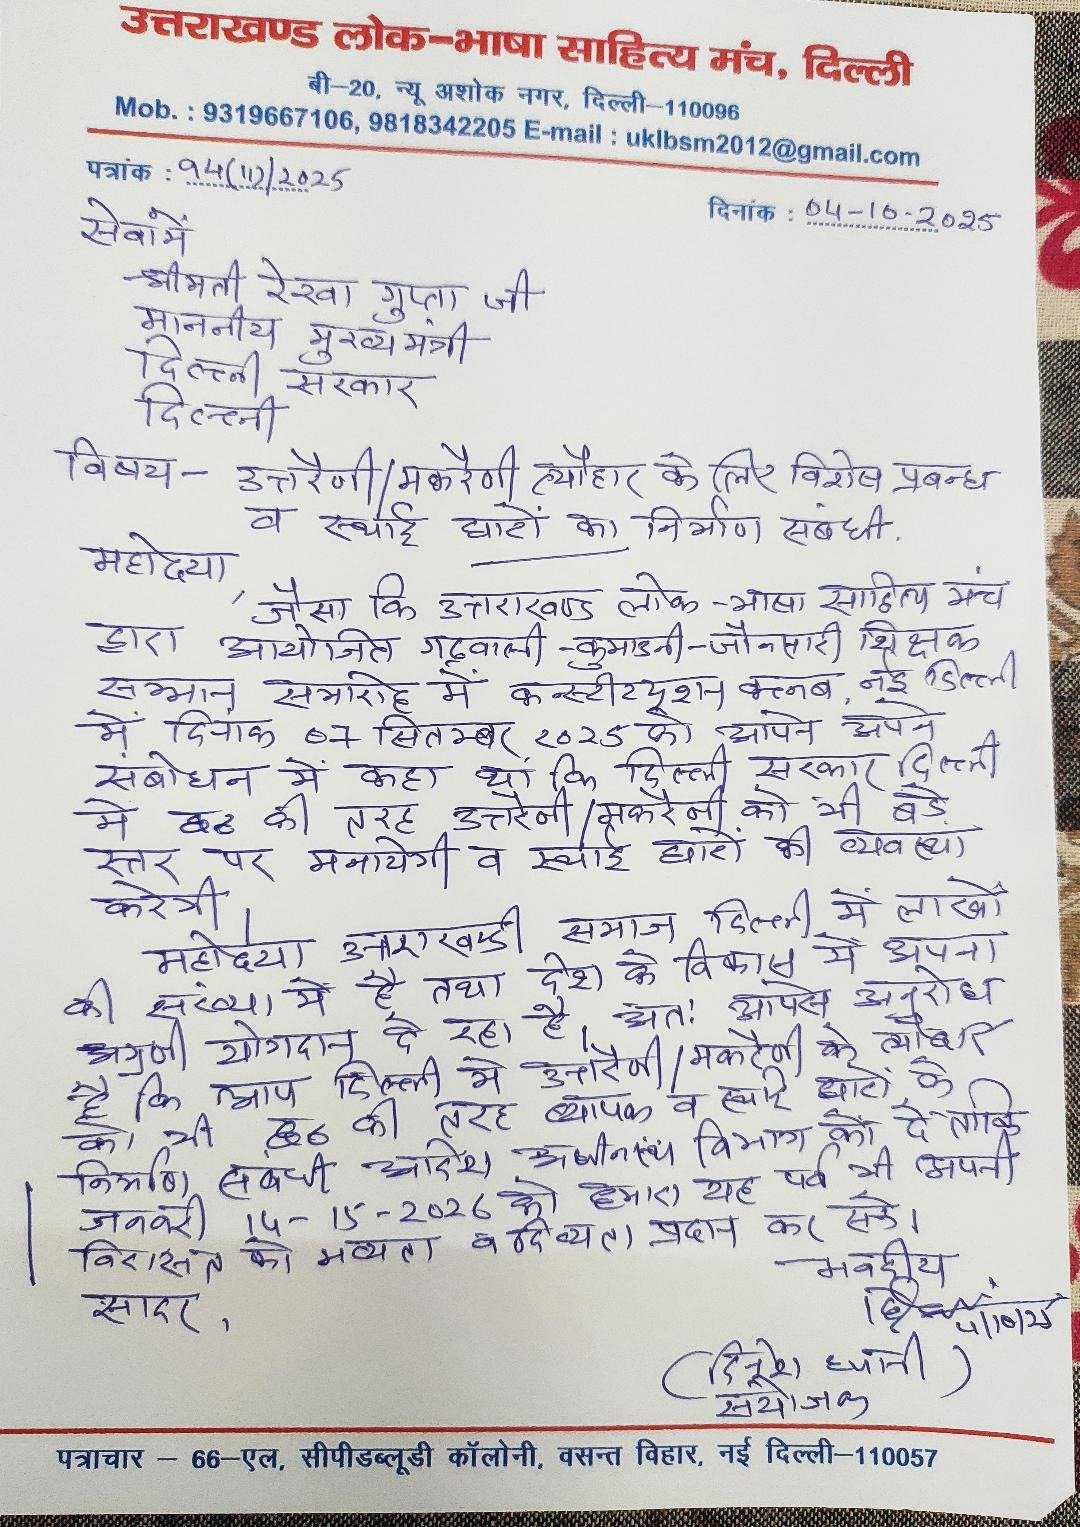 उत्तराखण्ड लोक-भाषा साहित्य मंच, दिल्ली
बी-20, न्यू अशोक नगर, दिल्ली-110096
Mob. : 9319667106, 9818342205 E-mail : uklbsm2012@gmail.com
पत्रांक : १४(11)/2025
दिनांक : 04-10-2025
सेवामें
श्रीमती रेखा गुप्ता जी
माननीय मुख्यमंत्री
दिल्ली सरकार
दिल्ली
विषय- उत्तरैणी/मकरैणी त्यौहार के लिए विशेष प्रबन्ध
व स्थाई घाटों का निर्माण संबंधी.
महोदया,
जैसा कि उत्तराखण्ड लोक-भाषा साहित्य मंच
द्वारा आयोजित गढ़वाली-कुमाउनी-जौनसारी शिक्षक
सम्मान समारोह में कन्स्टीट्यूशन क्लब, नई दिल्ली
में दिनांक 07 सितम्बर 2025 को आपने अपने
संबोधन में कहा था कि दिल्ली सरकार दिल्ली
में छठ की तरह उत्तरैणी/मकरैणी को भी बड़े
स्तर पर मनायेगी व स्थाई घाटों की व्यवस्था
करेगी।
महोदया उत्तराखण्डी समाज दिल्ली में लाखों
की संख्या में है तथा देश के विकास में अपना
अग्रणी योगदान दे रहा है। अतः आपसे अनुरोध
है कि आप दिल्ली में उत्तरैणी/मकरैणी के त्यौहार
को भी छठ की तरह व्यापक व स्थाई घाटों के
निर्माण संबंधी आदेश अधीनस्थ विभाग को दें ताकि
जनवरी 14-15-2026 को हमारा यह पर्व भी अपनी
विरासत को भव्यता व दिव्यता प्रदान कर सके।
सादर,
भवदीय
(दिनेश ध्यानी)
संयोजक
पत्राचार - 66-एल, सीपीडब्लूडी कॉलोनी, वसन्त विहार, नई दिल्ली-110057